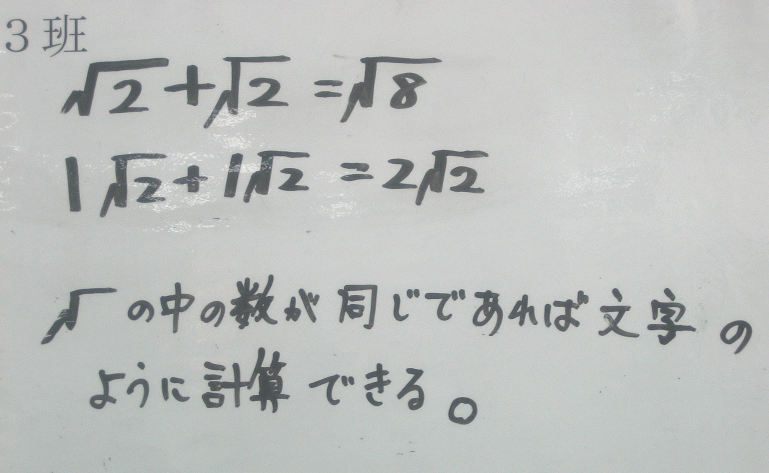 3班
√2+√2=√8
1√2+1√2=2√2
√の中の数が同じであれば文字の
ように計算できる。